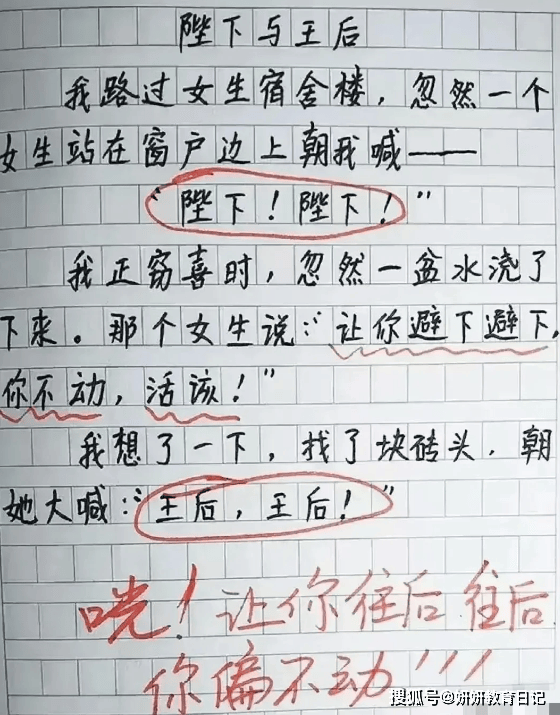 陛下与王后
我路过女生宿舍楼，忽然一个
女生站在窗户边上朝我喊——
“陛下！陛下！”
我正窃喜时，忽然一盆水浇了
下来。那个女生说：“让你避下避下，
你不动，活该！”
我想了一下，找了块砖头，朝
她大喊：“王后，王后！”
咣！让你往后往后
你偏不动！！！
搜狐号@妍妍教育日记